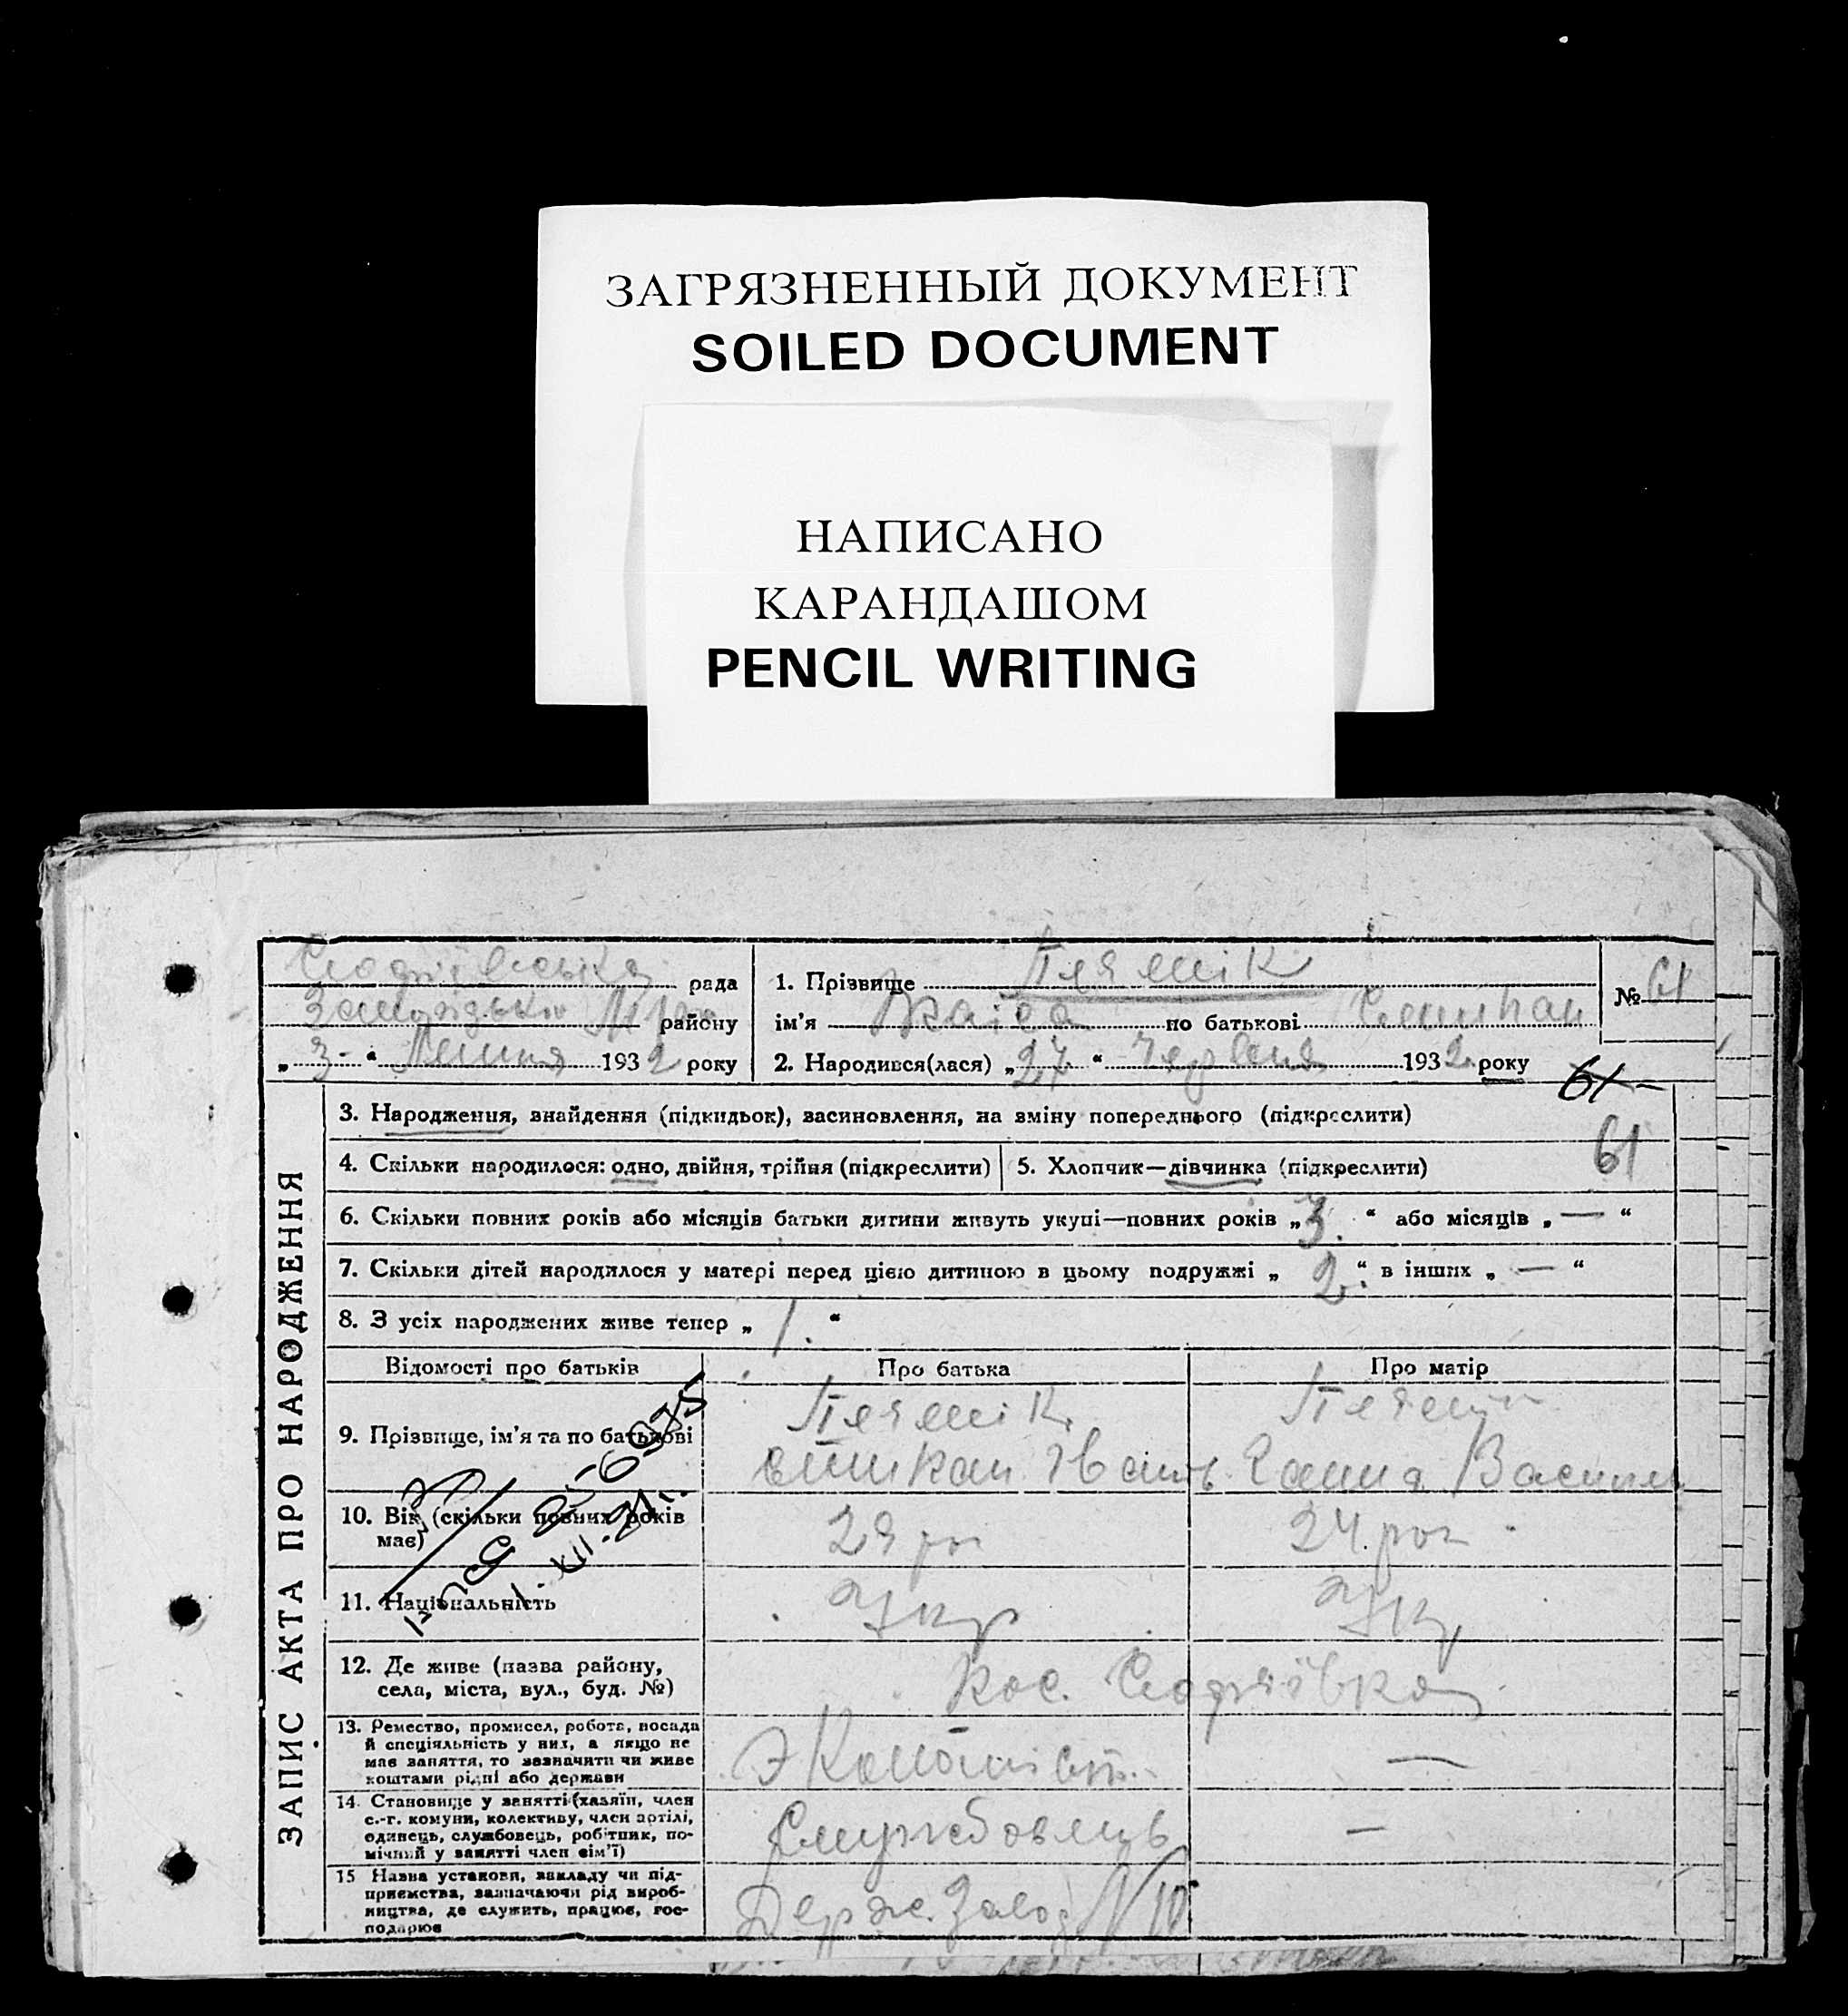 ЗАГРЯЗНЕННЫЙ ДОКУМЕНТ
SOILED DOCUMENT
НАПИСАНО
КАРАНДАШОМ
PENCIL WRITING
рада
району
„ 3 “ Липня 1932 року
1. Прізвище
ім'я Раіса по батькові Степан
2. Народився(лася) „ 27 “ Червня 1932 року
№ 61
61
61
ЗАПИС АКТА ПРО НАРОДЖЕННЯ
3. Народження, знайдення (підкидьок), засиновлення, на зміну попереднього (підкреслити)
4. Скільки народилося: одно, двійня, трійня (підкреслити)
5. Хлопчик—дівчинка (підкреслити)
6. Скільки повних років або місяців батьки дитини живуть укупі—повних років „ 3. “ або місяців „ — “
7. Скільки дітей народилося у матері перед цією дитиною в цьому подружжі „ 2. “ в інших „ — “
8. З усіх народжених живе тепер „ 1. “
Відомості про батьків
Про батька
Про матір
9. Прізвище, ім'я та по батькові
Ганна Васил
10. Вік (скільки повних років
має)
24 рок
11. Національність
Укр
Укр
12. Де живе (назва району,
села, міста, вул., буд. №)
13. Ремество, промисел, робота, посада
й спеціяльність у них, а якщо не
має заняття, то зазначити чи живе
коштами рідні або держави
Экономіст.
—
14. Становище у занятті (хазяїн, член
с.-г. комуни, колективу, член артілі,
одинець, службовець, робітник, по-
мічний у занятті член сім'ї)
Службовець
—
15 Назва установи, закладу чи під-
приємства, зазначаючи рід вироб-
ництва, де служить, працює, гос-
подарює
Держ. Завод N 10